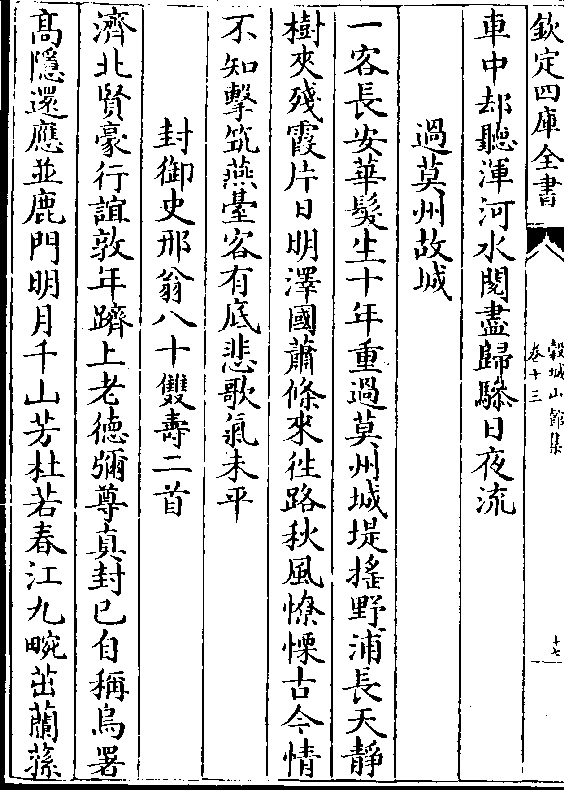 欽定四庫全書
穀城山館集
卷十三
十七
車中却聽渾河水閱盡歸驂日夜流
過莫州故城
一客長安華髮生十年重過莫州城堤搖野浦長天静
樹夾殘霞片日明澤國蕭條來徃路秋風憭慄古今情
不知擊筑燕臺客有底悲歌氣未平
封御史邢翁八十雙壽二首
濟北賢豪行誼敦年躋上老德彌尊真封已自稱烏署
髙隱還應並鹿門明月千山芳杜若春江九畹茁蘭蓀